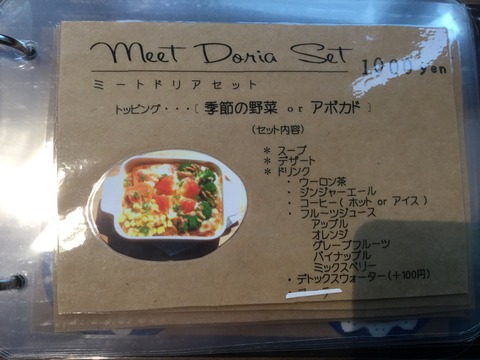 Meet Doria Set 1000yen
ミートドリアセット
トッピング・・・〔 季節の野菜 or アボカド 〕
(セット内容)
* スープ
* デザート
* ドリンク
・ ウーロン茶
・ ジンジャーエール
・ コーヒー( ホット or アイス )
・ フルーツジュース
アップル
オレンジ
グレープフルーツ
パイナップル
ミックスベリー
・ デトックスウォーター(+100円)